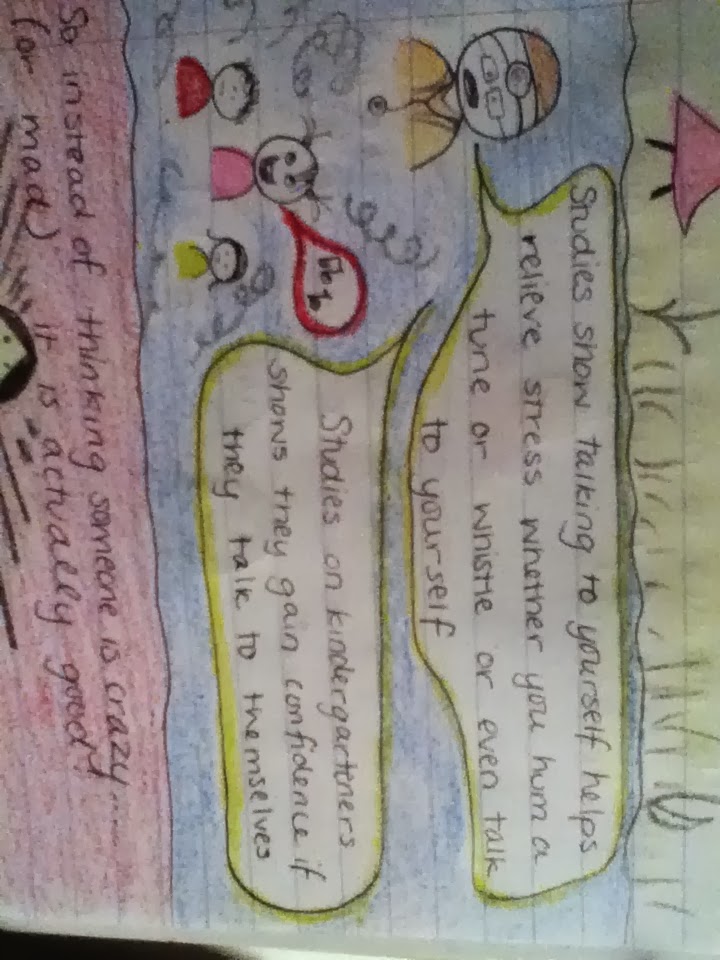 Studies show talking to yourself helps
relieve stress whether you hum a
tune or whistle or even talk
to yourself
Studies on kindergartners
shows they gain confidence if
they talk to themselves
So instead of thinking someone is crazy.....
(or mad) it is actually good!